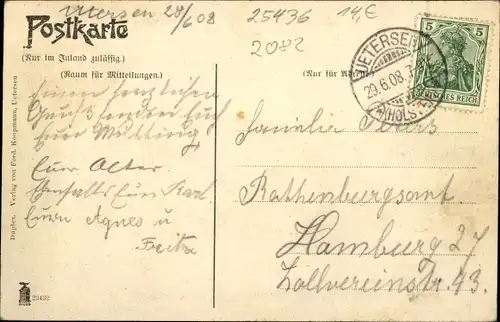 Uetersen 28/6 08
25436 14,€
2082
Postkarte
(Nur im Inland zulässig.)
(Raum für Mitteilungen.)
(Nur für Adresse)
UETERSEN
29.6.08.
(HOLST.)
5 5
DEUTSCHES REICH
Einen herzlichen
Gruß sendet Euch
Eure Mutting
Euer Alter
Ebenfalls Euer Karl
Eure Agnes u
Fritz
Familie
Rothenburgsamt
Hamburg 27
Zollvereinstr. 43.
Duplex. Verlag von Ferd. Koopmann, Uetersen
23432